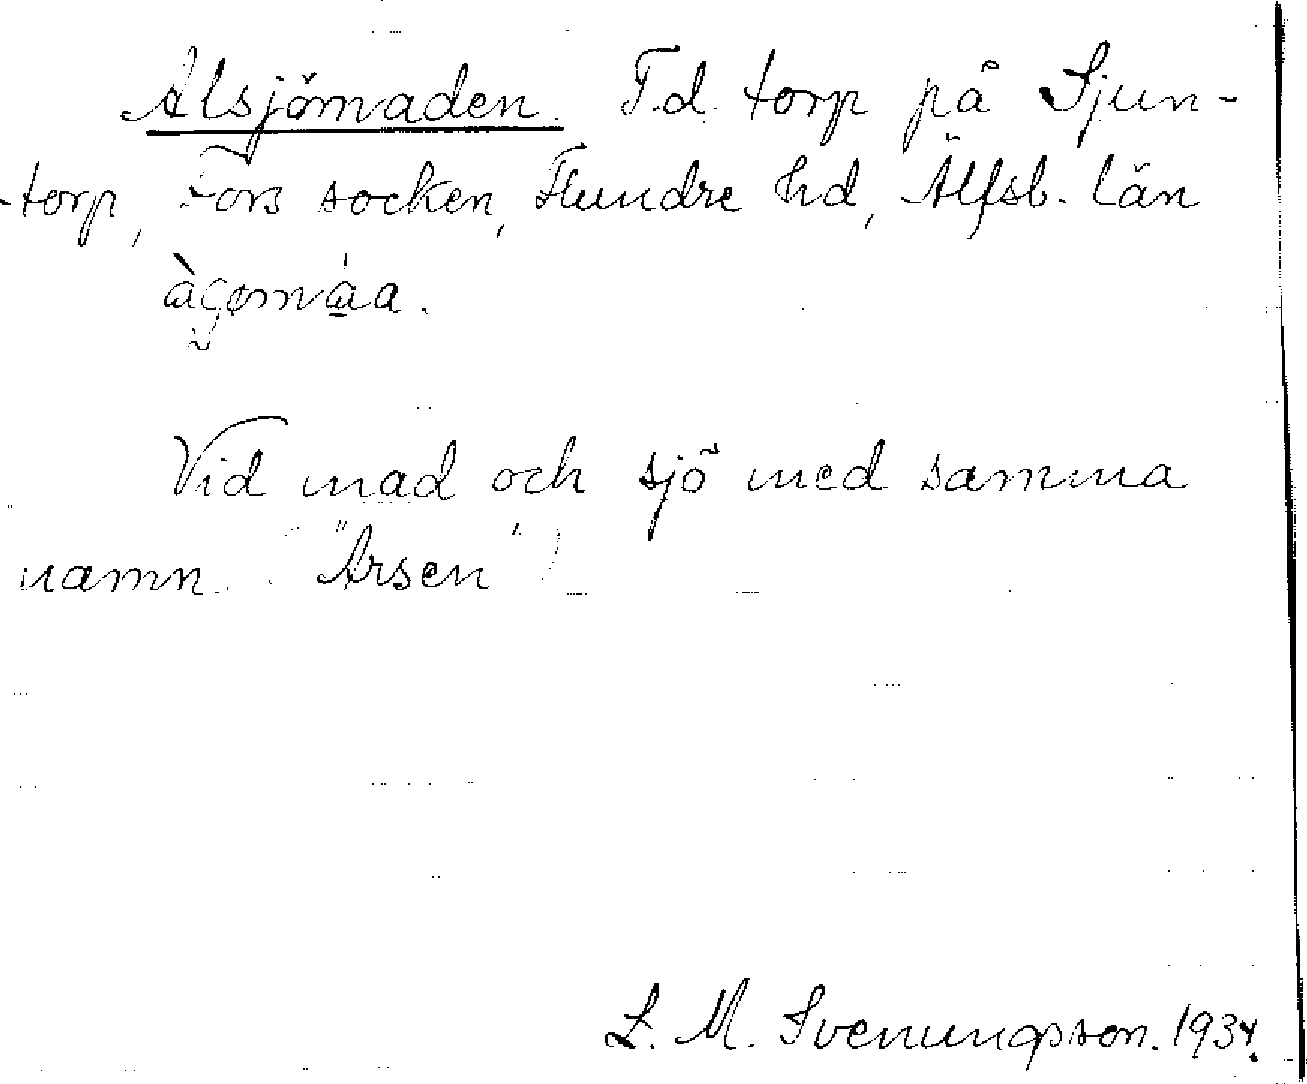 Alsjömaden. F.d. torp på Sjun-
torp, Fors socken, Flundre hd, Älfsb. län

Vid mad och sjö med samma
namn. ("Arsen")
L. M. Svenungsson. 1934.